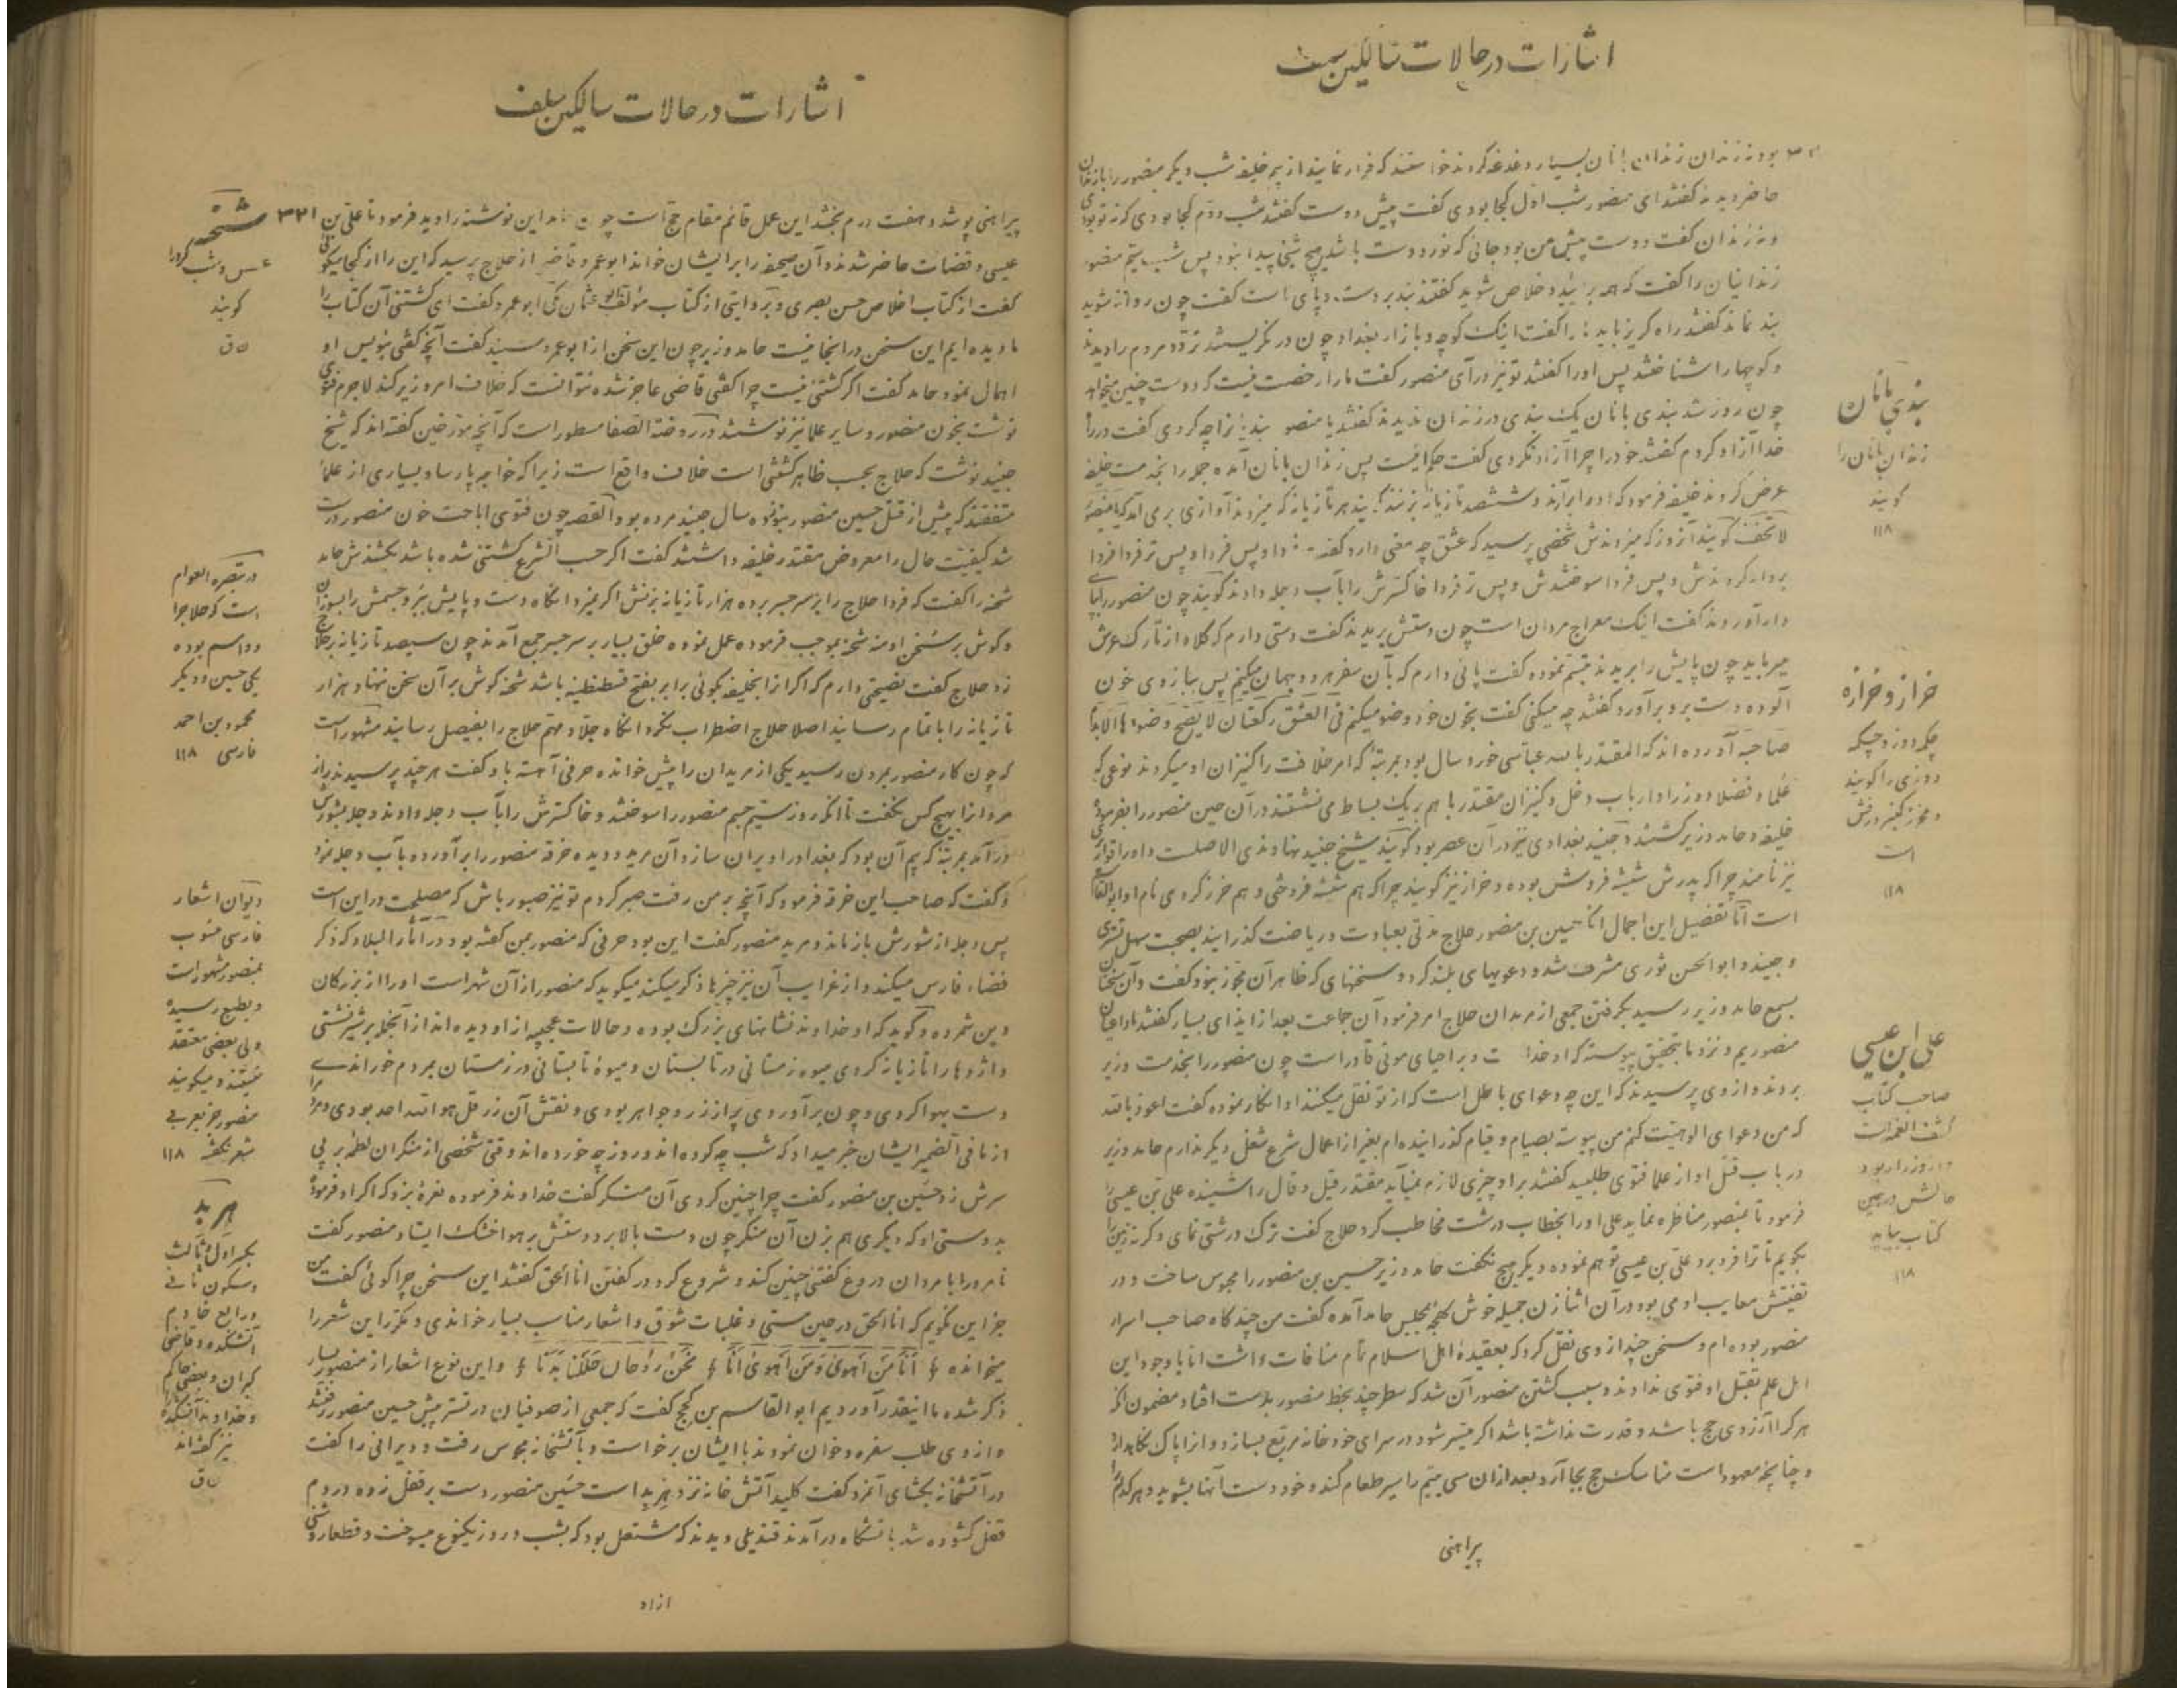 اشارات در حالات سالکین سلف
بود نه زندان زندان بانان بسیار دغدغه کردند خواستند که فرار نمایند از بیم خلیفه شب دیگر منصور را با زندان
حاضر دیدند گفتند ای منصور شب اول کجا بودی گفت پیش دوست گفتند شب دوم کجا بودی که نه تو بودی
و نه زندان گفت دوست پیش من بود جائی که نور دوست باشد هیچ شیئی پیدا نبود پس شب سیم منصور
زندانیان را گفت که همه برائید و خلاص شوید گفتند بند بر دست و پای است گفت چون روانه شوید
بند نماند گفتند راه گریز باید ما را گفت اینک کوچه و بازار بغداد چون در نگریستند تردد مردم را دیدند
و کوچها را شناختند پس او را گفتند تو نیز درآی منصور گفت ما را رخصت نیست که دوست چنین میخواهد
چون روز شد بندی بانان یک بندی در زندان ندیدند گفتند یا منصور بندیانرا چه کردی گفت در راه
خدا آزاد کردم گفتند خود را چرا آزاد نکردی گفت حکم نیست پس زندان بانان آمده خبر را بخدمت خلیفه
عرض کردند خلیفه فرمود که او را برآرند و ششصد تازیانه بزنند گویند هر تازیانه که میزدند آوازی برمی آمد که یا منصور
لا تخف گویند آنروز که میزدندش شخصی پرسید که عشق چه معنی دارد گفت فردا و پس فردا و پس تر فردا فردا
بردار کردندش و پس فردا سوختندش و پس تر فردا خاکسترش را بآب دجله دادند گویند چون منصور را بپای
دار آوردند گفت اینک معراج مردان است چون دستش بریدند گفت دستی دارم که کلاه از تارک عرش
میرباید چون پایش را بریدند تبسم نموده گفت پائی دارم که بآن سفر هر دو جهان میکنم پس ببازوی خون
آلوده دست برو برآورد گفتند چه میکنی گفت بخون خود وضو میکنم فی العشق رکعتان لا یصح وضوءها الا بالدم
صاحبه آورده اند که المقتدر بالله عباسی خورد سال بود بمرتبهٔ که امر خلافت را کنیزان او میکردند بنوعی که
علما و فضلا و وزرا و ارباب دخل و کنیزان مقتدر با هم بر یک بساط می نشستند در آن حین منصور را بفرمودهٔ
خلیفه و حامد وزیر کشتند و جنید بغدادی نیز در آن عصر بود گویند شیخ جنید نهاوندی الاصل است و او را قواریری
نیز نامند چرا که پدرش شیشه فروش بوده و خراز نیز گویند چرا که هم شیشه فروختی و هم خرز کردی نام او ابوالقاسم
است امّا تفصیل این اجمال آنکه حسین بن منصور حلاج مدتی بعبادت و ریاضت گذرانید بصحبت سهل تستری
و جنید و ابوالحسن نوری مشرف شد و دعویهای بلند کرد و سخنهای که ظاهر آن مجوز نبود گفت و آن سخنان
بسمع حامد وزیر رسید بگرفتن جمعی از مریدان حلاج امر فرمود آن جماعت بعد از ایذای بسیار گفتند ما داعیان
منصوریم و نزد ما بتحقیق پیوسته که او خدا ت و بر احیای موتی قادر است چون منصور را بخدمت وزیر
بردند و از وی پرسیدند که این چه دعوای باطل است که از تو نقل میکنند او انکار نموده گفت اعوذ بالله
که من دعوای الوهیّت کنم من پیوسته بصیام و قیام گذرانیده ام بغیر از اعمال شرع شغلی دیگر ندارم حامد وزیر
در باب قتل او از علما فتوی طلبید گفتند بر او چیزی لازم نمیآید مقتدر قیل و قال را شنیده علی بن عیسی را
فرمود تا بمنصور مناظره نماید علی او را بخطاب درشت مخاطب کرد حلاج گفت ترک درشتی نمای و گرنه زمین را
بگویم تا ترا فرو برد علی بن عیسی توهم نموده دیگر هیچ نگفت حامد وزیر حسین بن منصور را محبوس ساخت و در
تفتیش معایب او می بود در آن اثنا زن جمیله خوش لهجه بمجلس حامد آمده گفت من چند گاه صاحب اسرار
منصور بوده ام و سخن چند از وی نقل کرد که بعقیدهٔ اهل اسلام تمام منافات داشت اما با وجود این
اهل علم بقتل او فتوی ندادند و سبب کشتن منصور آن شد که سطر چند بخط منصور بدست افتاد مضمون آنکه
هر که را آرزوی حج باشد و قدرت نداشته باشد اگر میسر شود در سرای خود خانه مربع بسازد و آنرا پاک نگاهدارد
و چنانچه معهود است مناسک حج بجا آرد بعد از آن سی یتیم را سیر طعام کند و خود دست آنها بشوید و هر کدام را
پیراهنی
بندی بانان
زندان بانان را
گویند
۱۱۸
خراز و خرازه
چکمه دوز و چکمه
دوزی را گویند
است
۱۱۸
علی ابن عیسی
صاحب کتاب
کشف الغمه است
و از وزرا بود
حالش در همین
کتاب بیاید
۱۱۸
اشارات در حالات سالکین سلف
۳۲۱
پیراهنی پوشد و هفت درم بخشد این عمل قائم مقام حج است چون حامد این نوشته را دید فرمود تا علی بن
عیسی و قضات حاضر شدند و آن صحیفه را بر ایشان خواند ابوعمرو قاضی از حلاج پرسید که این را از کجا میگوئی
گفت از کتاب اخلاص حسن بصری و بروایتی از کتاب مؤلف ابو عثمان مکی ابوعمرو گفت ای کشتنی آن کتاب را
ما دیده ایم این سخن در آنجا نیست حامد وزیر چون این سخن از ابوعمرو شنید گفت آنچه گفتی بنویس او
اهمال نمود حامد گفت اگر کشتنی نیست چرا گفتی قاضی عاجز شده نتوانست که خلاف امر وزیر کند لاجرم فتوی
نوشت بخون منصور و سایر علما نیز نوشتند در روضة الصفا مسطور است که آنچه مورخین گفته اند که شیخ
جنید نوشت که حلاج بحسب ظاهر کشتنی است خلاف واقع است زیرا که خواجه پارسا و بسیاری از علما
متفقند که پیش از قتل حسین منصور بنوزده سال جنید مرده بود القصه چون فتوی اباحت خون منصور درست
شد کیفیت حال را معروض مقتدر خلیفه داشتند گفت اگر حسب الشرع کشتنی شده باشد بکشندش حامد
شحنه را گفت که فردا حلاج را بر سر جسر برده هزار تازیانه بزنش اگر نمیرد آنگاه دست و پایش ببُر و جسمش را بسوزان
و گوش بر سخن او منه شحنه بموجب فرموده عمل نموده خلق بسیار بر سر جسر جمع آمدند چون سیصد تازیانه بر حلاج
زد حلاج گفت نصیحتی دارم که اگر آنرا بخلیفه بگوئی برابر بفتح قسطنطنیه باشد شحنه گوش بر آن سخن ننهاد و هزار
تازیانه را باتمام رسانید اصلا حلاج اضطراب نکرد آنگاه جلاد مهم حلاج را بفیصل رسانید مشهور است
که چون کار منصور بمردن رسید یکی از مریدان را پیش خوانده حرفی آهسته باو گفت هر چند پرسیدند راز
مرد آنرا بهیچ کس نگفت تا آنکه روز سیّم جسم منصور را سوختند و خاکسترش را بآب دجله دادند دجله بشورش
درآمد بمرتبهٔ که بیم آن بود که بغداد را ویران سازد آن مرید دویده خرقه منصور را برآورده بآب دجله نمود
و گفت که صاحب این خرقه فرمود که آنچه بر من رفت صبر کردم تو نیز صبور باش که مصلحت در این است
پس دجله از شورش باز ماند و مرید منصور گفت این بود حرفی که منصور بمن گفته بود در آثار البلاد که ذکر
فضاء فارس میکند و از غرایب آن نیز چیزها ذکر میکند میگوید که منصور از آن شهر است او را از بزرگان
دین شمرده و گوید که او خداوند نشانهای بزرگ بوده و حالات عجیبه از او دیده اند از آنجمله بر شیر نشستی
و اژدها را تازیانه کردی میوه زمستانی در تابستان و میوهٔ تابستانی در زمستان بمردم خوراندی
دست بهوا کردی و چون برآوردی پر از زر و جواهر بودی و نقش آن زر قل هو الله احد بودی و مردم را
از ما فی الضمیر ایشان خبر میداد که شب چه کرده اند و روز چه خورده اند وقتی شخصی از منکران لطمه بر پی
سرش زد حسین بن منصور گفت چرا چنین کردی آن منکر گفت خداوند فرموده نعره بزد که اگر او فرمودهٔ
بدوستی او که دیگری هم بزن آن منکر چون دست بالا برد دستش بر هوا خشک ایستاد منصور گفت
نامرد را با مردان دروغ گفتن چنین کند و شروع کرد در گفتن انا الحق گفتند این سخن چرا گوئی گفت من
جز این نگویم که انا الحق در حین مستی و غلبات شوق و اشعار مناسب بسیار خواندی و مکرر این شعر را
میخوانده ؏ أَنَا مَنْ أَهْوَى وَمَنْ أَهْوَى أَنَا ؏ نَحْنُ رُوحَانِ حَلَلْنَا بَدَنَا ؏ و این نوع اشعار از منصور بسیار
ذکر شده ما اینقدر آوردیم ابو القاسم بن کج گفت که جمعی از صوفیان در تستر پیش حسین منصور رفتند
و از وی طلب سفره و خوان نمودند با ایشان برخواست و بآتشخانه مجوس رفت و دیرانی را گفت
در آتشخانه بگشای آنمرد گفت کلید آتش خانه نزد هِربِد است حسین منصور دست بر قفل زده در دم
قفل گشوده شد بآتشگاه درآمدند قندیلی دیدند که مشتعل بود که بشب و روز یکنوع میسوخت و قطعا روشنی
ازاد
شحنه
عسس و شب گرد را
گویند
ق
در تبصره العوام
است که حلاج را
دو اسم بوده
یکی حسین و دیگر
محمود بن احمد
فارسی ۱۱۸
دیوان اشعار
فارسی منسوب
بمنصور مشهور است
و بطبع رسیده
ولی بعضی معتقد
نیستند و میگویند
منصور جز بعربی
شعر نگفته ۱۱۸
هربد
بکسر اول و ثالث
و سکون ثانی
و رابع خادم
آتشکده و قاضی
گبران و بعضی حاکم
و خداوند آتشکده را
نیز گفته اند
ق